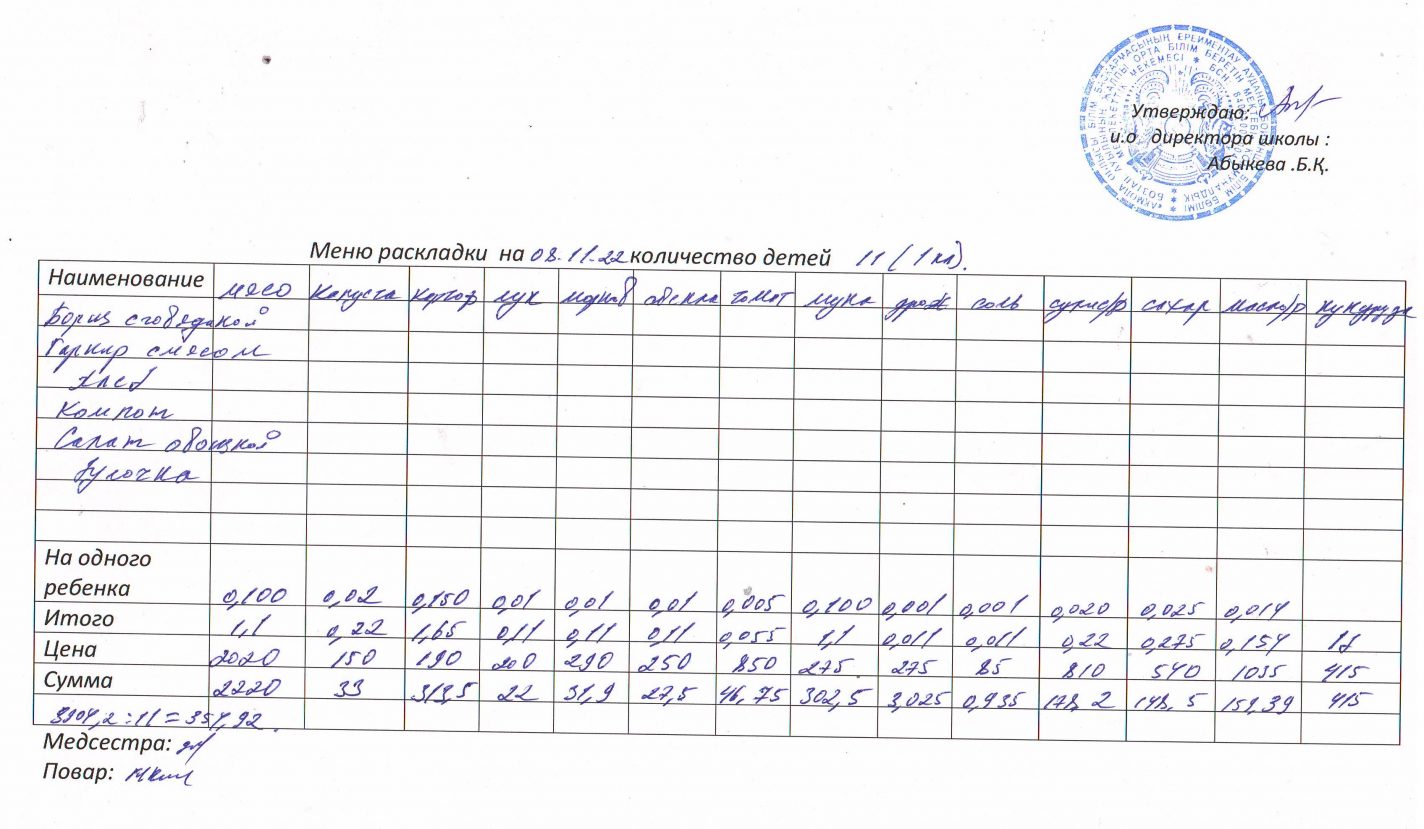 Утверждаю:
и.о директора школы :
Абыкева .Б.Қ.
Меню раскладки на 08.11.22 количество детей 11 (1 кл).
Наименование мясо капуста картоф лук морков свекла томат мука дрож соль сухисф сахар масло/р кукуруза
Борщ с говядиной
Гарнир с мясом
Хлеб
Компот
Салат овощной
Булочка
На одного
ребенка 0,100 0,02 0,150 0,01 0,01 0,01 0,005 0,100 0,001 0,001 0,020 0,025 0,014
Итого 1,1 0,22 1,65 0,11 0,11 0,11 0,055 1,1 0,011 0,011 0,22 0,275 0,154 1
Цена 2020 150 190 200 290 250 850 275 275 85 810 540 1035 415
Сумма 2220 33 313,5 22 31,9 27,5 46,75 302,5 3,025 0,935 178,2 148,5 159,39 415
3904,2 : 11 = 354,92.
Медсестра:
Повар: